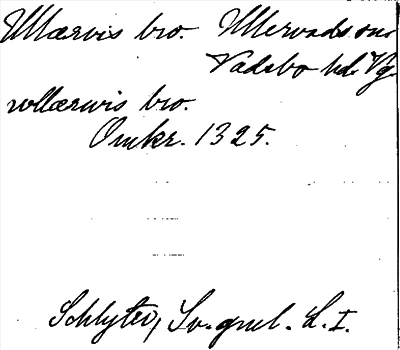 Ullærvis bro. Ullervads sn
Vadsbo hd. Vg.
wllærwis bro.
Omkr. 1325.
Schlyter, Sv. gml. L. I.